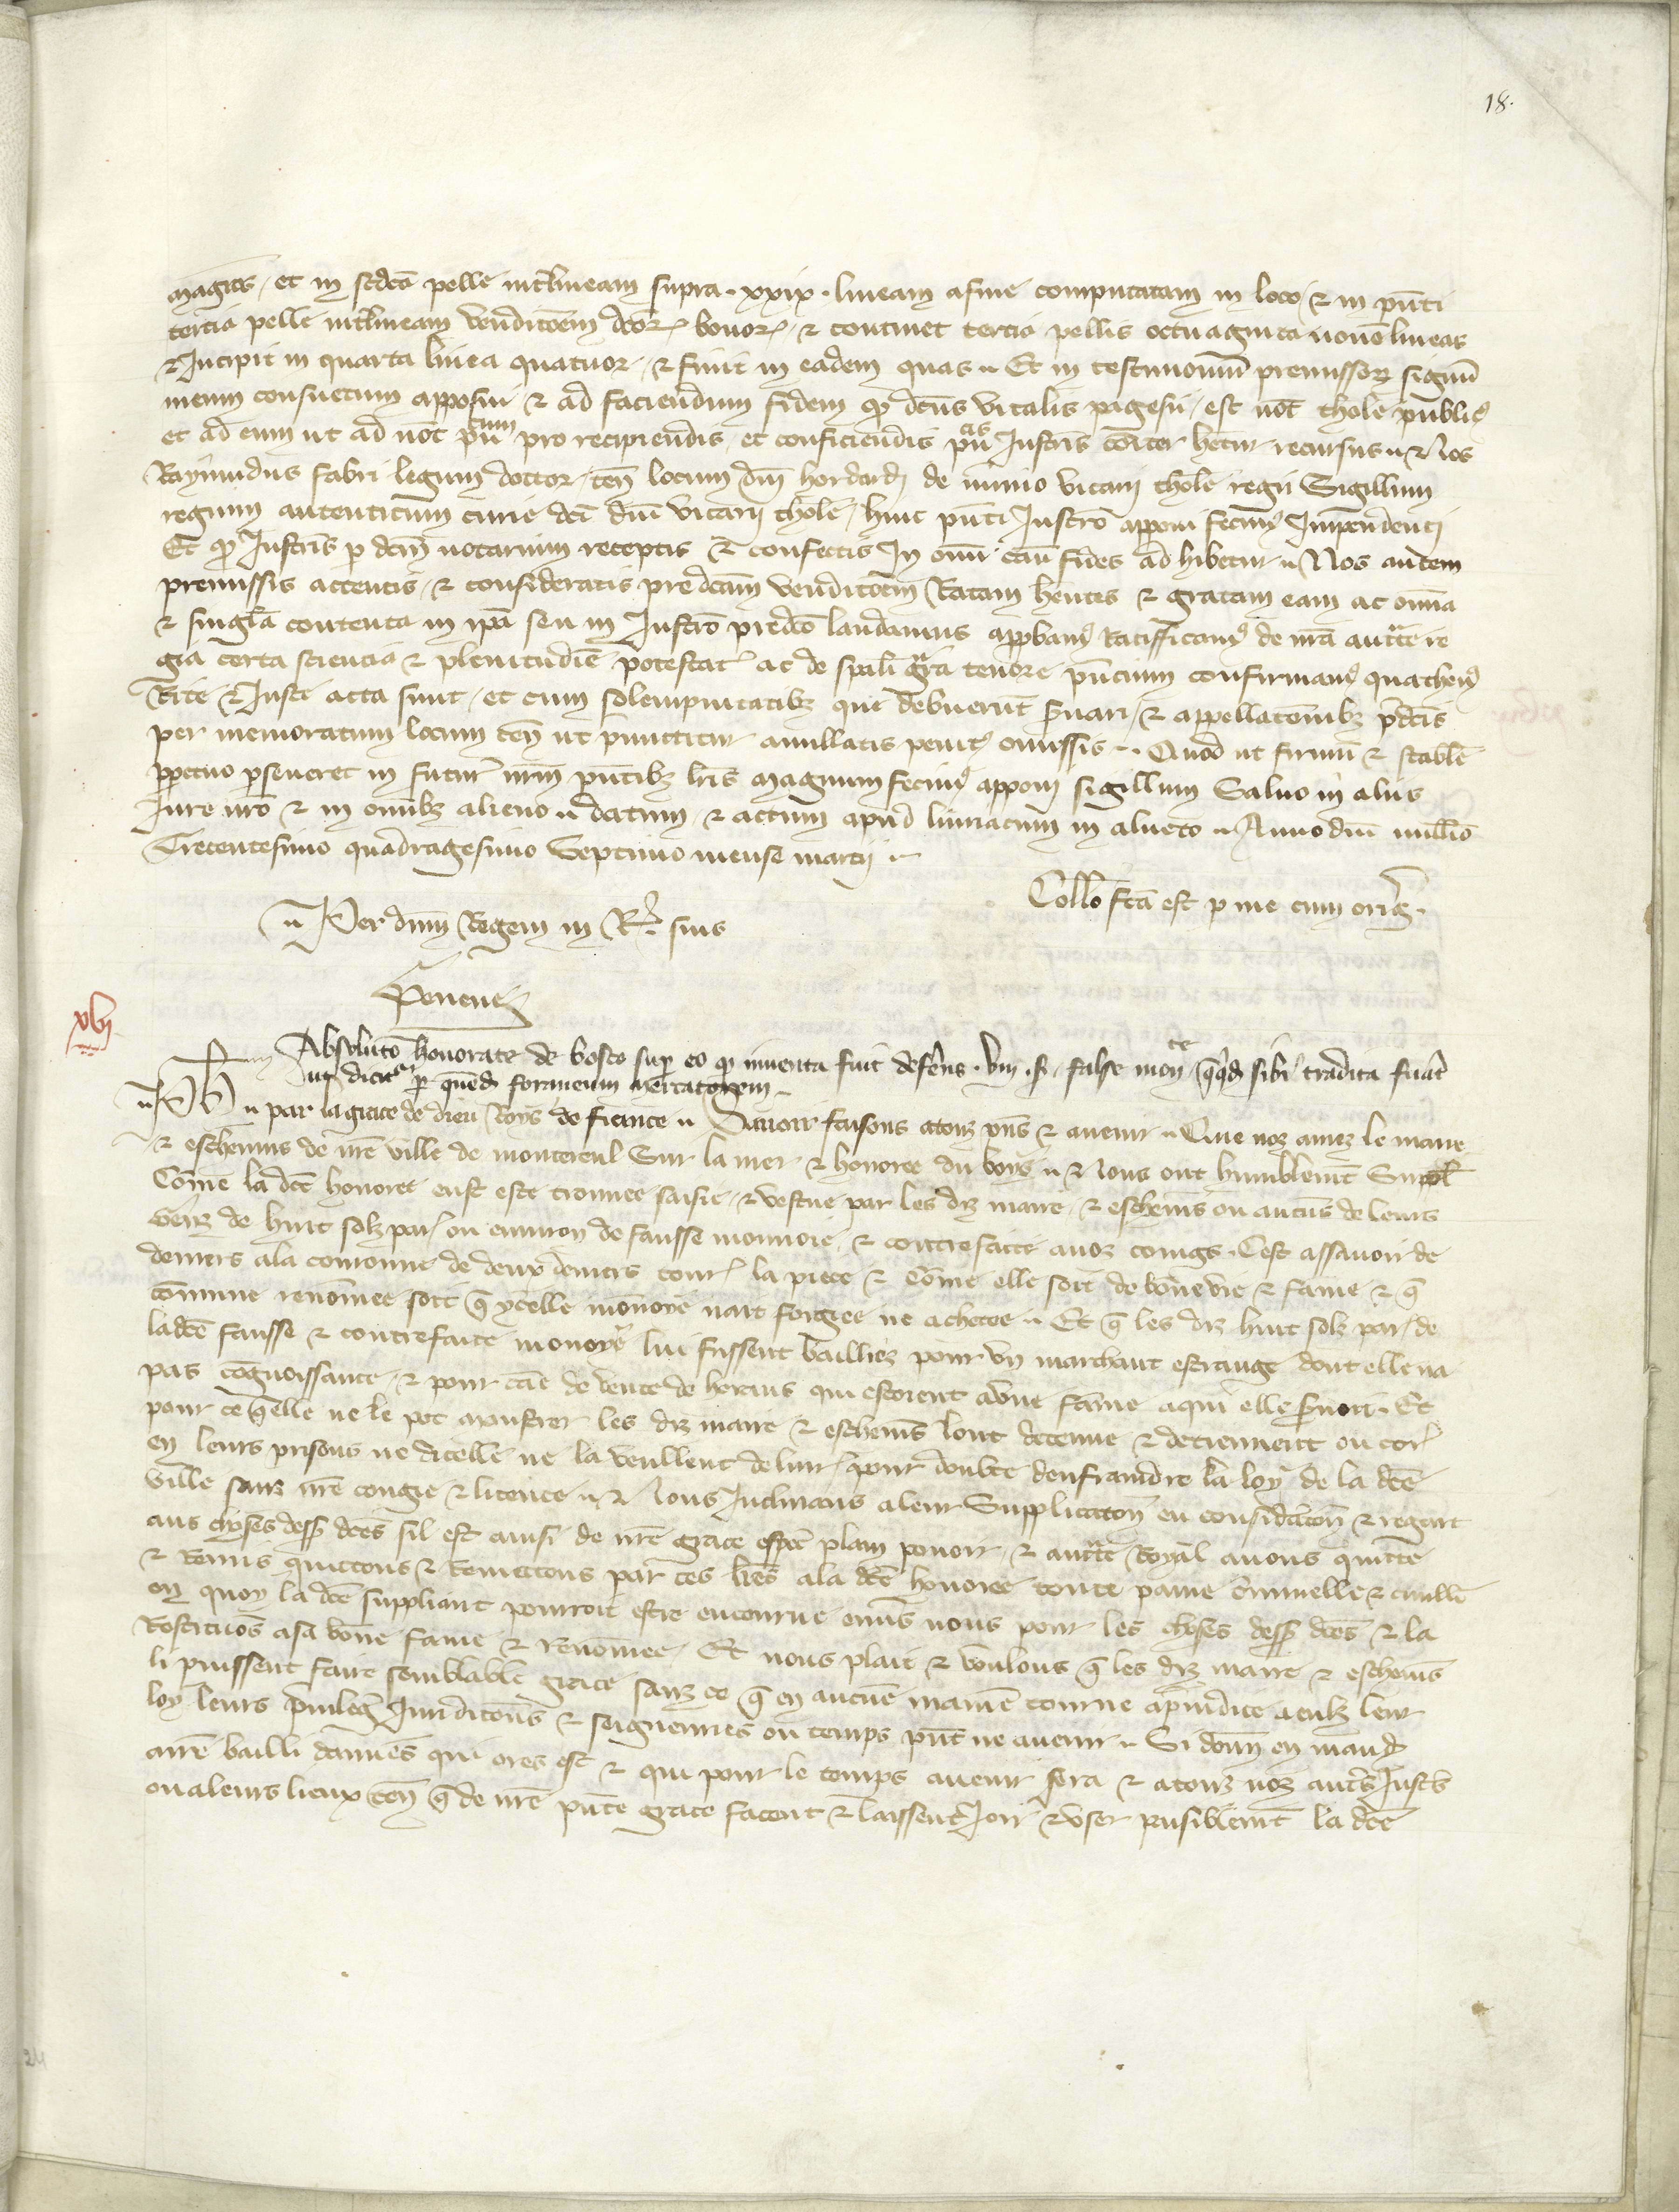 18.
magis, et in sedcã pelle intˢlineam supra . xxix . lineam a fine computatam in loco, & in pñti
tercia pelle intˢlineam venditõem dcõꝝ bonoꝝ, & continet tercia pellis octuaginta novẽ lineas
& Incipit in quarta linea quatuor, & finit in eadem quas. Et in testimoniũ premissoꝝ signũ
meum consuetum apposui & ad faciendum fidem qꝫ dcũs vitalis pagesii, est not̃ tholẽ publicꝰ
et ad eum ut ad not̃ pũcum pro recipiendis, et conficiendis pũᵃˢ Instrũs cõiter hetur recursus. & Nos
Raymundus fabri legum doctor, teñ locum dñi hordardi de mimo vicarii tholẽ regii Sigillum
regium autenticum curie dci dñi vicarii tholẽ, huic pñti Instrõ apponi fecimꝰ Impendenti
Et qꝫ Instrĩs p dcm̃ notarium receptis & confectis In om̃i cãu fides ad hibetur. Nos autem
premissis attentis, & consideratis predcãm venditõem Ratam hẽntes & gratam eam ac om̃ia
& singl̃a contenta in ip̃a seu in Instrõ predcõ laudamus appbamꝰ Ratifficamꝰ de nr̃a auctˢte re
gia certa sciencia & plenitudiẽ potestatꝰ ac de sp̃ali gr̃a tenore pñcium confirmamꝰ quathenꝰ
Rite & Juste acta sunt, et cum solempnitatibꝫ que debuerũt s̃vari, & appellacõnibꝫ p̃dcĩs
per memoratum locum teñ ut p̃mittitur anullatis penitꝰ omissis. Quod ut firmũ & stabl̃e
ppetuo pseveret in futurˢ nr̃m pñtibꝫ lr̃is magnum fecimꝰ apponi sigillum Salvo in aliis
Jure nr̃o & in om̃ibꝫ alieno. datum & actum apud luniacum in alneto. Anno dñi mill̃o
Trecentesimo quadragesimo Septimo mense marcii.
Coll̃o fc̃a est p me cum orig̃.
Per dñm Regem in Rˢ. suis
Peneueꝝ
xvi
Absolutõ honorate de bosco supˢ eo qꝫ inventa fuit defˢens . viii . s̃ . false monete qꝫqđ sibi tradita fuˢat
ut dicitur p quẽđ forineum mercatorem.
Ph par la grace de dieu Roys de france. Savoir faisons a touz pñs & avenir. Que noz amez le maire
& eschevins de nr̃e ville de monteruel Sur la mer & honoree du boys. & Nous ont humblemt̃ Suppl̃
Cõme la dcẽ honoree eust este trouvee saisie, & vestue par les diz maire & eschevĩs ou aucũs de leurs
genz de huit solz parˢ ou environ de fausse monnoie, & contrefaite a noz coings. Cest assavoir de
deniers ala coronne de deux deniers tourˢ la piece & cõme elle soit de bõne vie & fame & q̃
cõmune renõmee soit q̃ ycelle mõnoye nait forgiee ne achetee. Et q̃ les diz huit solz parˢ de
ladcẽ fausse & contrefaite monoye lui fussent bailliez pour un marchant estrange dont elle na
pas cõgnoissance, & pour cãe de vente de herens qui estoient a bõne fãme a qui elle s̃voit. Et
pour ce q̃elle ne le pot monstrer les diz maire & eschevĩs lont detenue & detiennent ou corˢ
en leurs prisons ne dicelle ne la veullent delivrˢ pour doubte denfraindre la loy de la dcẽ
ville sanz nr̃e congie & licence. & Nous Inclinans aleur Supplicatoñ eu consideˢatoñ & regart
aus choses dessˢ dcẽs sil est ainsi de nr̃e grace esp̃al plain povoir & auctˢte Royal avons quictie
& Remis quictons & Remettons par ces lr̃es ala dcẽ honoree toute paine c̃minelle & civill̃e
en quoy la dcẽ suppliant pourroit estre encourue envˢs nous pour les choses dessˢ dcẽs & la
Restituõs a sa bõne fame & renõmee. Et nous plait & voulons q̃ les diz maire & eschevĩs
li puissent faire semblable grace sanz ce q̃ en aucũe maniẽ tourne apˢjudice a eulx leur
loy leurs pˢvileg̃ Jurisdicõns & seigneuries ou temps pñt ne avenir. Si donñ en mandt̃
a nr̃e bailli damiens qui ores est & qui pour le temps avenir sera & a touz noz autˢs Justic̃
ou a leurs lieux teñ q̃ de nr̃e pñte grace facent & laissent Joir & user paisiblemt̃ la dcẽ